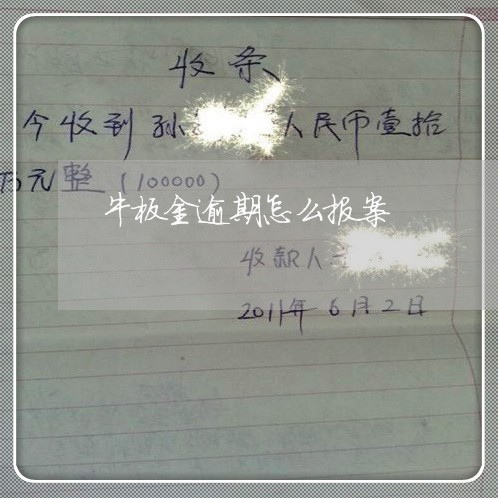 收条
今收到孙 人民币壹拾
万元整（100000）
牛板金逾期怎么报案
收款人
2011年6月2日